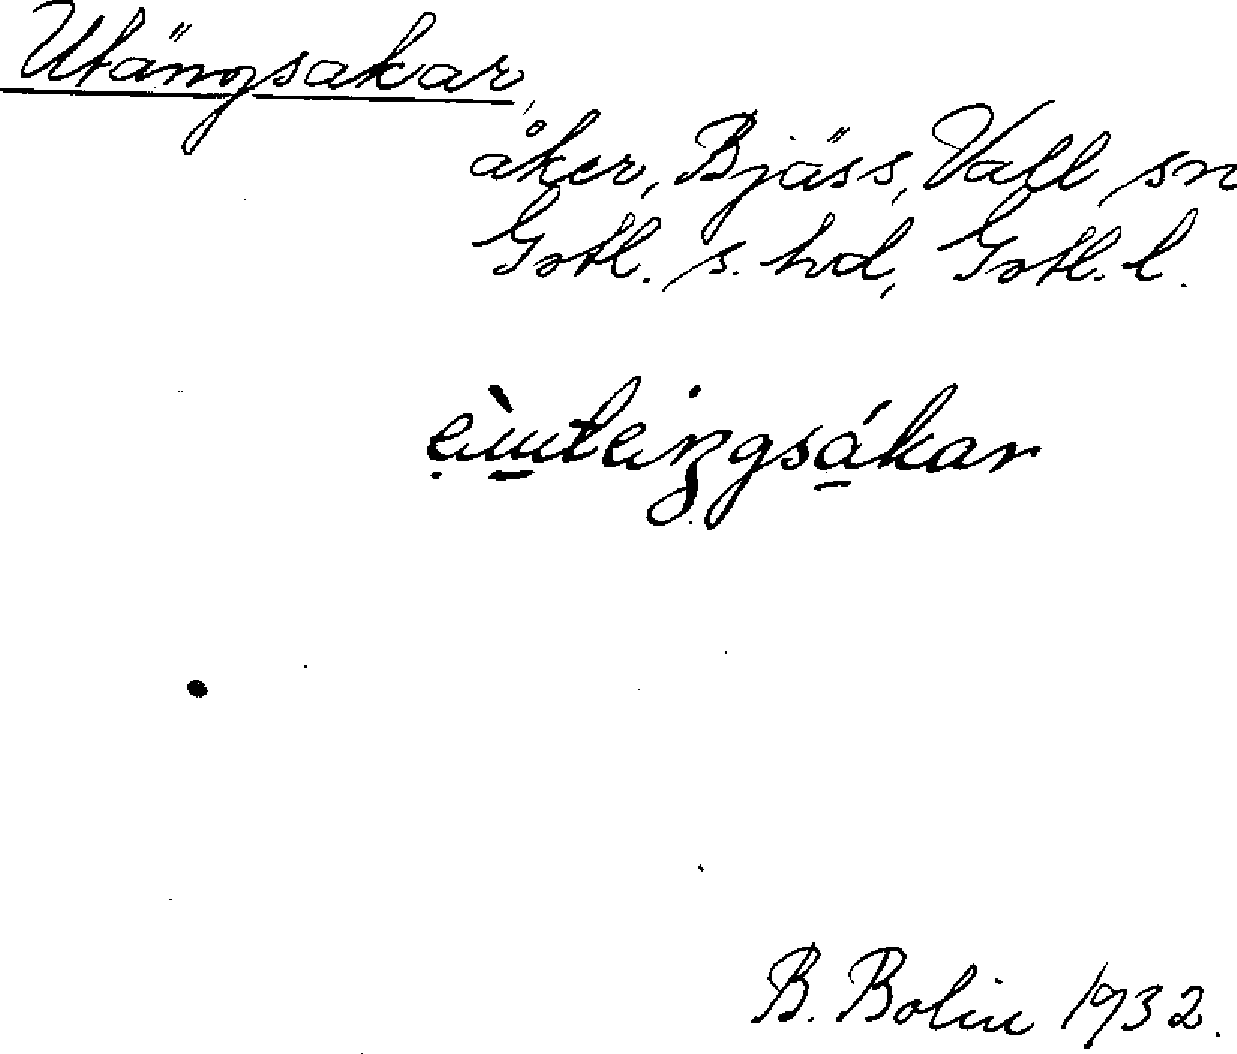 Utängsakar,
åker, Bjäss, Vall sn
Gotl. s. hd, Gotl. l.
B. Bolin 1932.